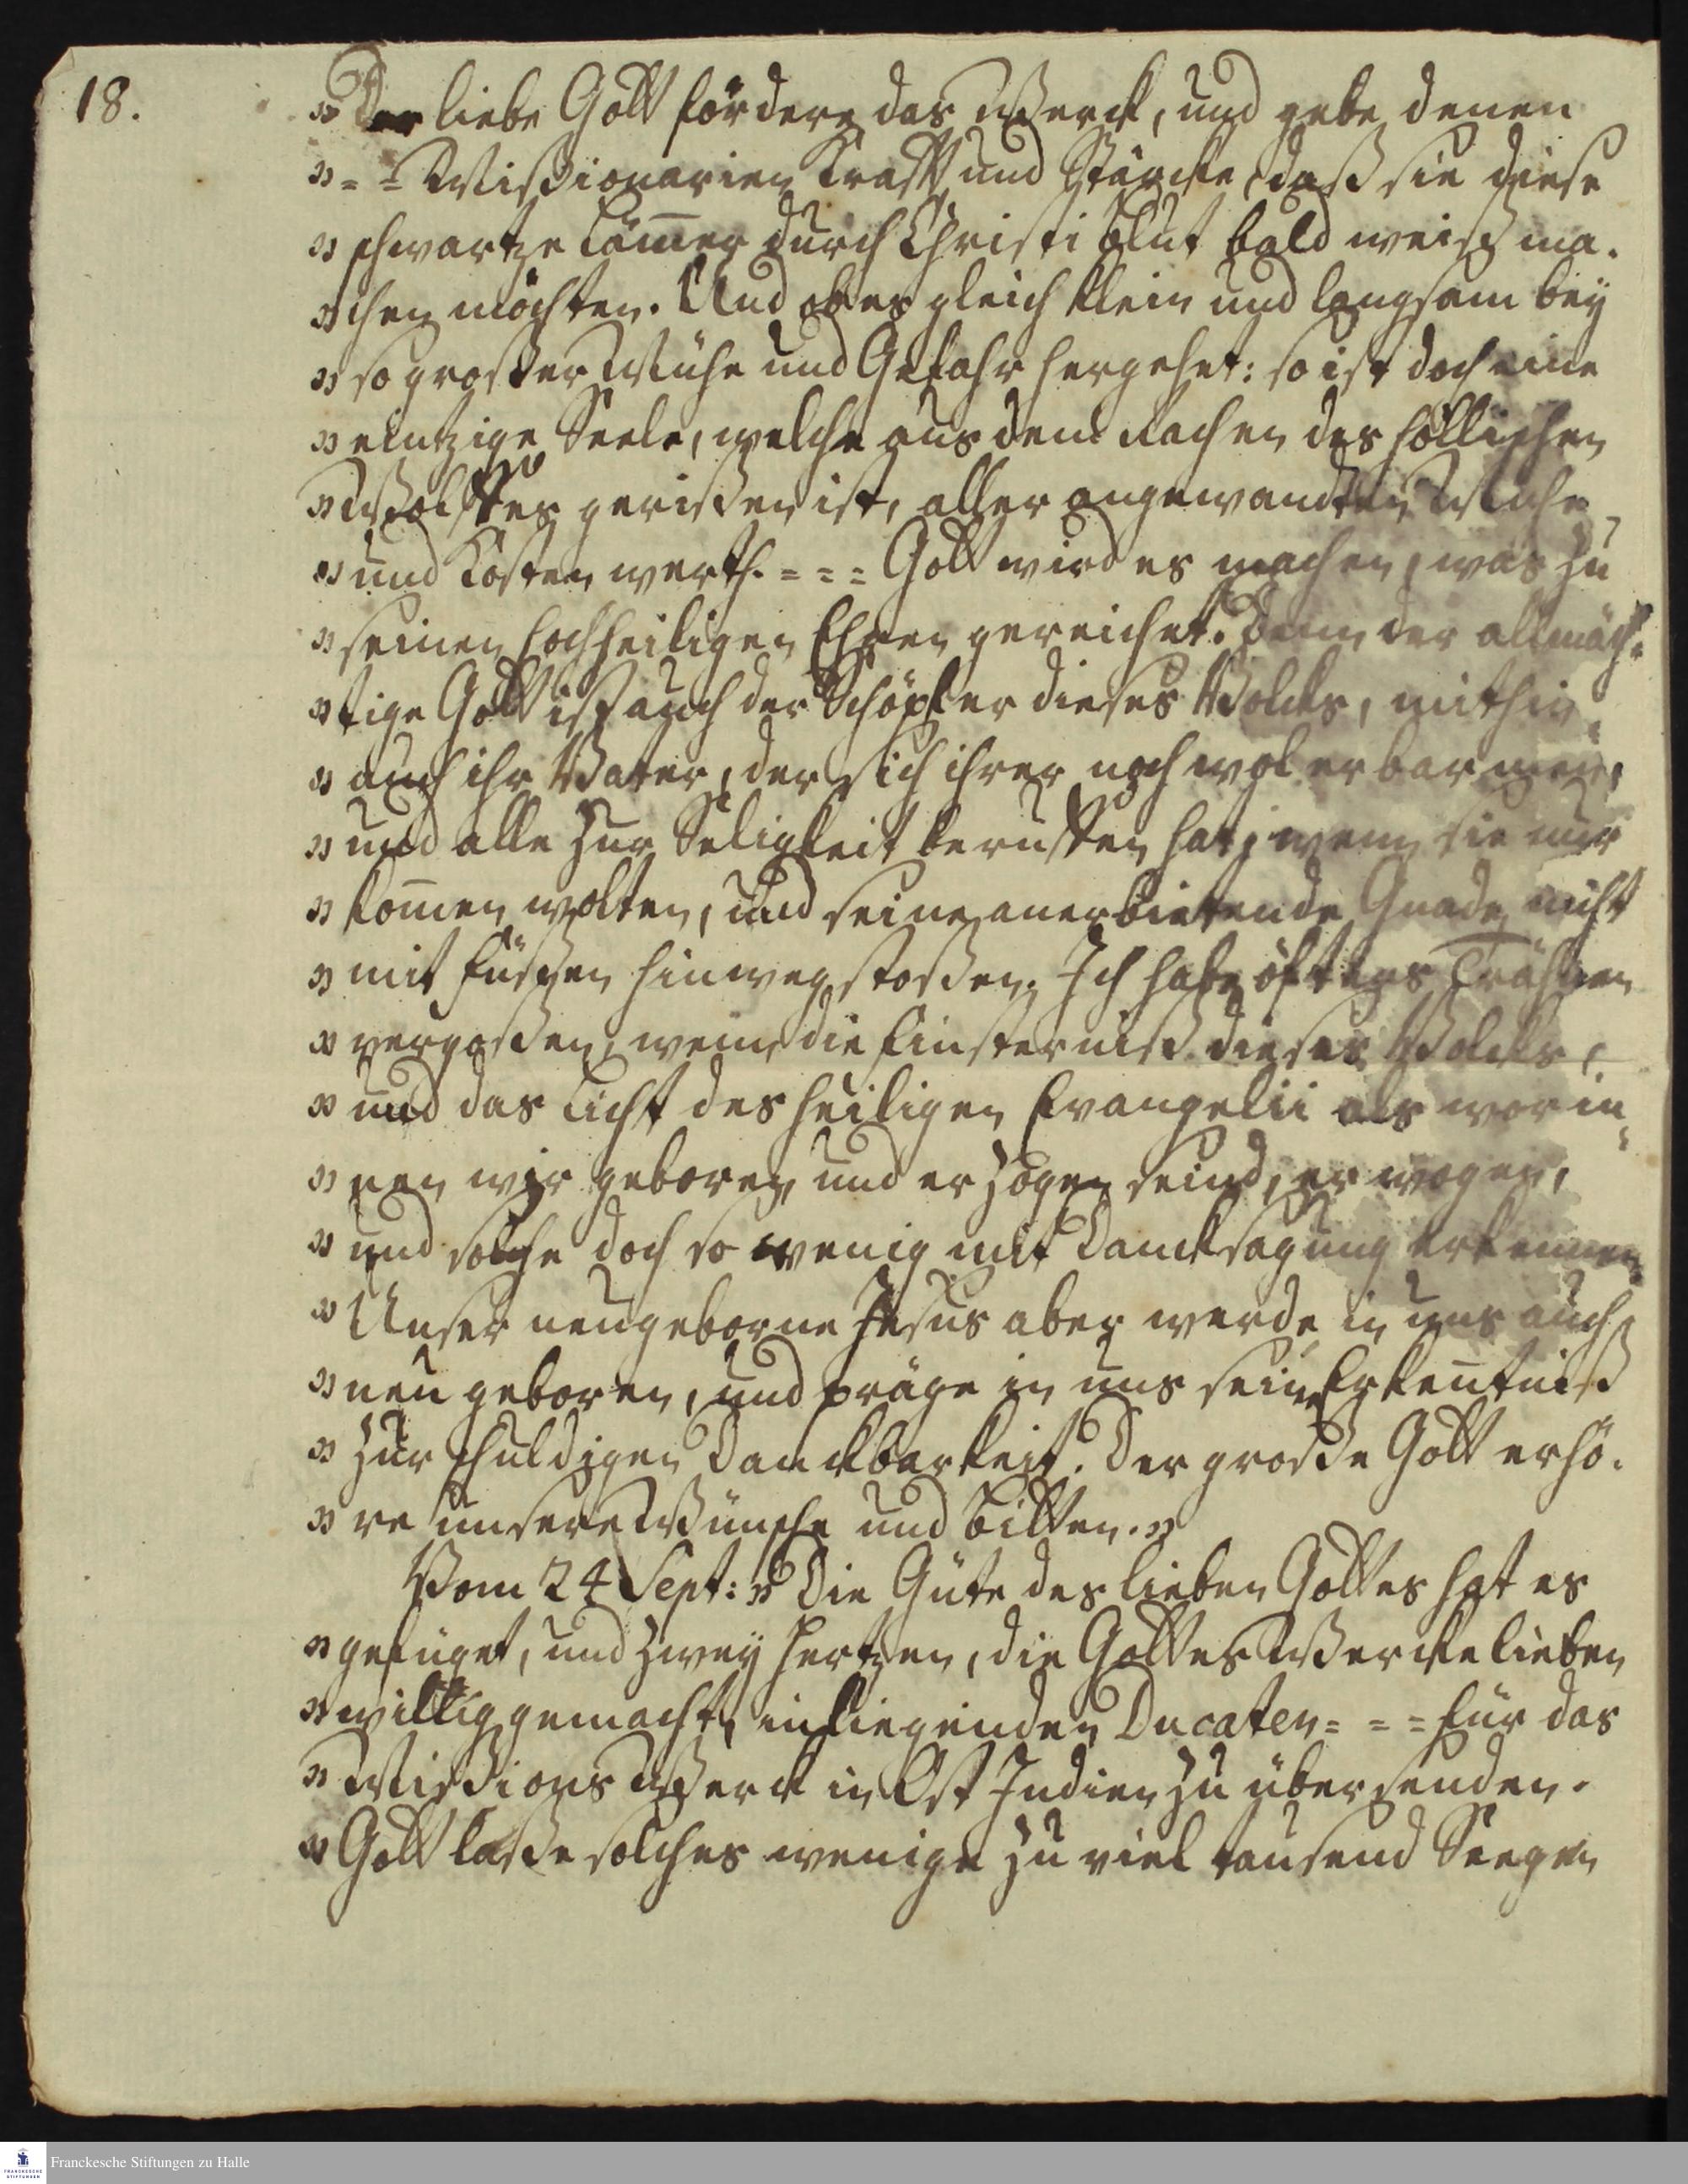 18.
„Der liebe Gott fördere das Werck, und gebe denen
„= = Missionarien Krafft und Stärcke, daß sie diese
„schwartze Lam̅er durch Christi Blut bald weiß ma-
„chen möchten. Und ob es gleich klein und langsam bey
„so großer Mühe und Gefahr hergehet: so ist doch eine
„eintzige Seele, welche aus dem Rachen des höllischen
„Wolffes gerißen ist, aller angewandten Mühe
„und Kosten werth. = = = Gott wird es machen, was zu
„seinen hochheiligen Ehren gereichet. Denn der allmäch-
„tige Gott ist auch der Schöpfer dieses Volcks, mithin
„auch ihr Vater, der sich ihrer noch wol erbarmen,
„und alle zur Seligkeit beruffen hat, wenn sie nur
„kom̅en wolten, und seine anerbietende Gnade nicht
„mit Füßen hinweg stoßen. Ich habe öfters Trähnen
„vergoßen, wenn die Finsterniß dieses Volcks,
„und das Licht des heiligen Evangelii als worin-
„nen wir geboren und erzogen seind, erwogen,
„und solche doch so wenig mit Dancksagung erkennen.
„Unser neugeborne Jesus aber werde in uns auch
„neu geboren, und präge in uns seine Erken̅tniß
„zur schuldigen Danckbarkeit. Der große Gott erhö-
„re unsere Wünsche und Bitten. „
Vom 24 Sept: „Die Güte des lieben Gottes hat es
„gefüget, und zwey Hertzen, die Gottes Wercke lieben
„willig gemacht, einliegenden Ducaten = = = für das
„Missions Werck in Ost Indien zu übersenden.
„Gott laße solches wenige zu viel tausend Seegen
Franckesche Stiftungen zu Halle